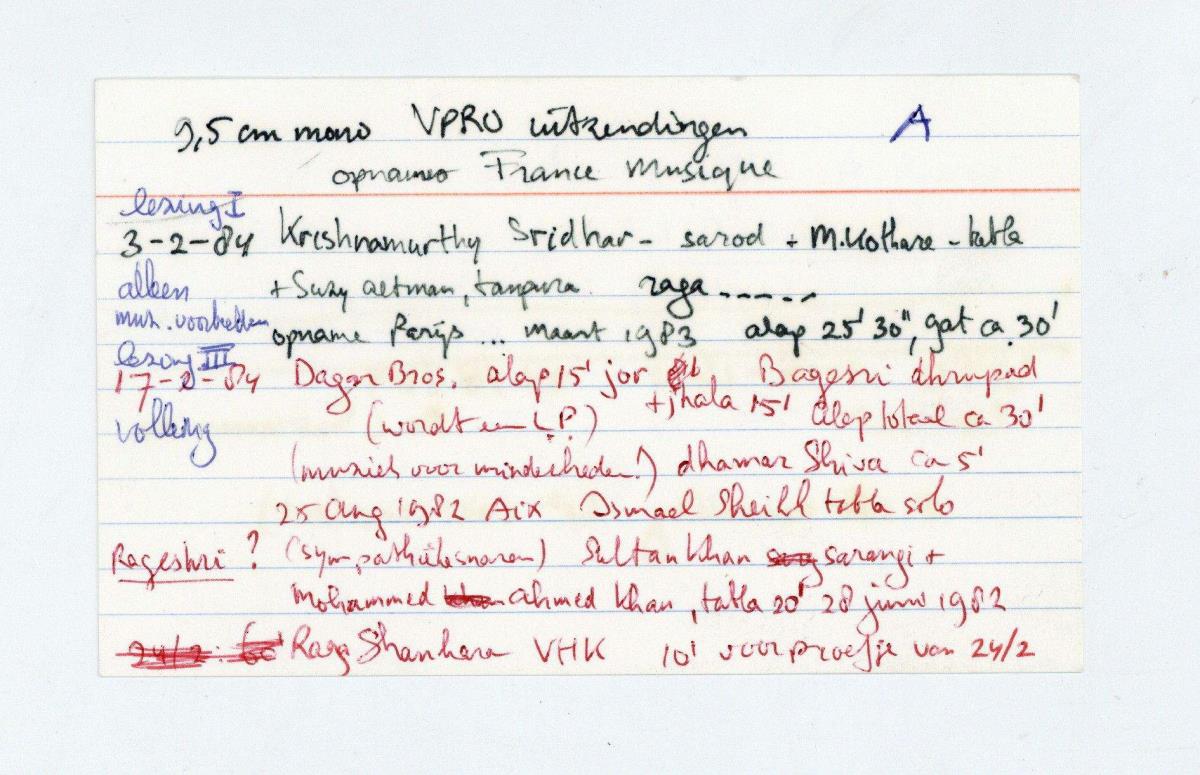 9,5 cm mono VPRO uitzendingen A
opname France Musique
lezing I
3-2-84 Krishnamurthy Sridhar - sarod + M. Kothare - tabla
alleen + Suzy aetman, tanpura. raga -----
muz. voorbeelden opname Parijs ... maart 1983 alap 25' 30", gat ca. 30'
lezing III
17-2-84 Dagar Bros. alap 15' jor Bagesri dhrupad
+ jhala 15'
volledig (wordt een L.P.) alap totaal ca 30'
(muziek voor minderheden!) dhamar Shiva ca 5'
25 Aug 1982 Aix Ismael Sheikh tabla solo
Rageshri ? (sympathieksnaren) Sultan Khan sarangi +
Mohammed Ahmed Khan, tabla 20' 28 juni 1982
24/2. 60' Raga Shankara VHK 10' voorproefje van 24/2